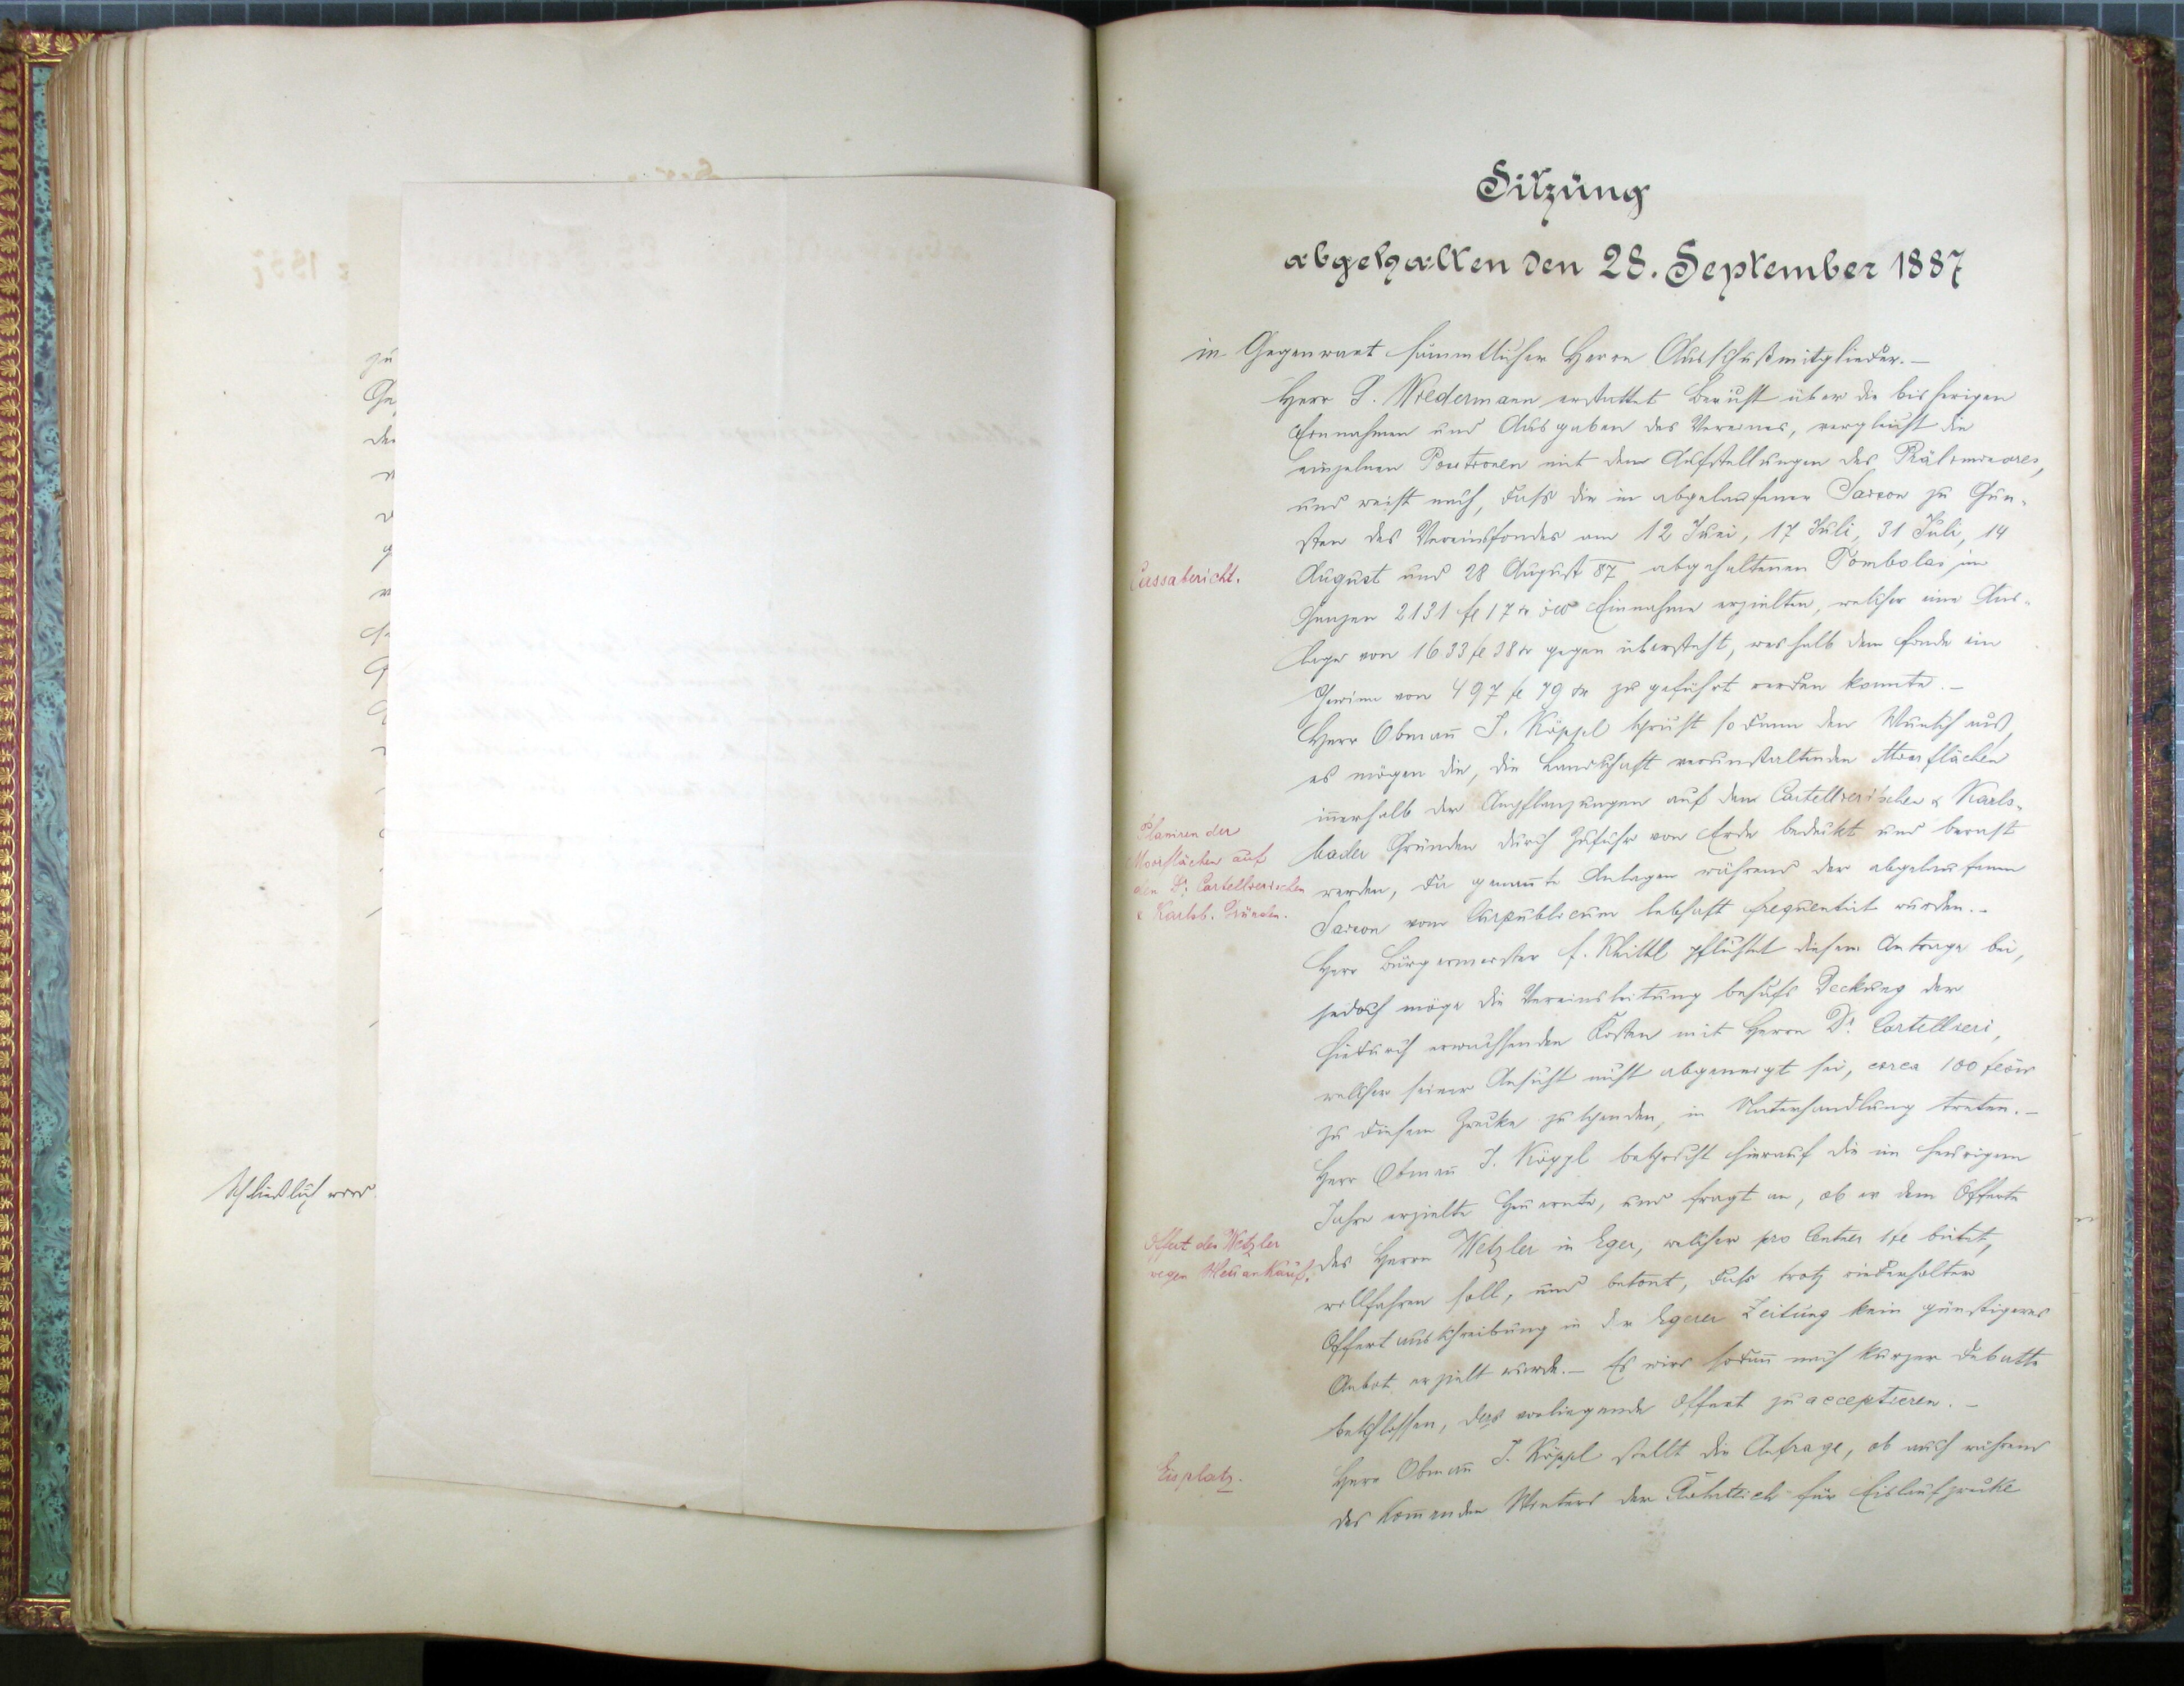 zu
Ge
der
Schließlich wird
Sitzung
abgehalten den 28. September 1887
in Gegenwart sämmtlicher Herrn Ausschußmitglieder. –
Herr S. Wiedermann erstattet Bericht über die bisherigen
Einnahmen und Ausgaben des Vereines, vergleicht die
einzelnen Positionen mit den Aufstellungen des Präliminares,
und weist nach, dass die in abgelaufener Saison zu Gun-
sten des Vereinsfondes am 12 Juni, 17 Juli, 31 Juli, 14
Cassabericht.
August und 28 August 87 abgehaltenen Tombolas im
Ganzen 2131 fl 17 kr öw Einnahme erzielten, welcher eine Aus-
lage von 1633 fl 38 kr gegen übersteht, weshalb dem Fonde ein
Gewinn von 497 fl 79 kr zu geführt werden konnte. –
Herr Obman̄ J. Köppl spricht sodann den Wunsch aus,
es mögen die, die Landschaft verunstaltenden Moorflächen
in̄erhalb der Anpflanzungen auf den Cartellieri'schen & Karls-
Planiren der
Moorflächen auf
den Dr. Cartellierischen
& Karlsb. Gründen.
bader Gründen durch Zufuhr von Erde bedeckt und berast
werden, da genan̄te Anlagen während der abgelaufenen
Saison vom Curpublicum lebhaft frequentirt wurden. –
Herr Bürgermeister f. Khittl pflichtet diesem Antrage bei,
jedoch möge die Vereinsleitung behufs Deckung der
hiedurch erwachsenden Kosten mit Herrn Dr. Cartellieri,
welcher seiner Ansicht nicht abgeneigt sei, circa 100 fl öw
zu diesem Zwecke zu spenden, in Unterhandlung treten. –
Herr Obman̄ J. Köppl bespricht hierauf die im heurigen
Jahre erzielte Heuernte, und fragt an, ob er dem Offerte
Offert des Wetzler
wegen Heuankauf.
des Herrn Wetzler in Eger, welcher pro Centner 1 fl bietet,
willfahren soll, und betont, dass trotz wiederholter
Offertausschreibung in der Egerer Zeitung kein günstigeres
Anbot erzielt wurde. – Es wird sodan̄ nach kurzer Debatte
beschlossen, das vorliegende Offert zu acceptieren. –
Eisplatz.
Herr Obman̄ J. Köppl stellt die Anfrage, ob auch während
des kom̄enden Winters der für Eislaufzwecke